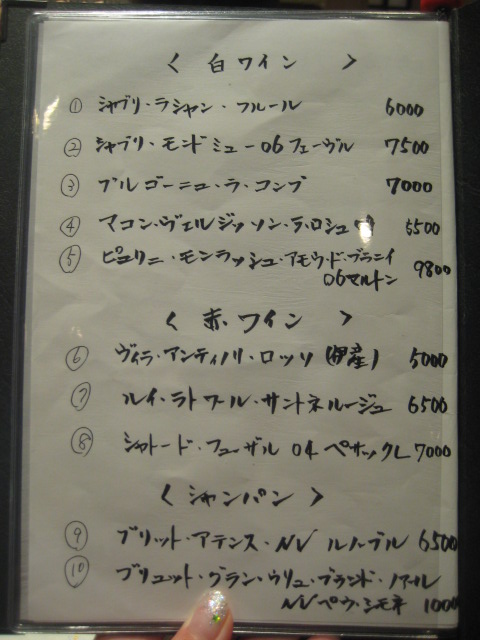 〈 白ワイン 〉
① シャブリ・ラシャン・フルール 6000
② シャブリ・モンドミュー06フェーヴル 7500
③ ブルゴーニュ・ラ・コンブ 7000
④ マコン・ヴェルジッソン・ラ・ロシュ 5500
⑤ ピュリニ・モンラッシュ・アモウ・ド・ブラニイ
06マルトン 9800
〈 赤ワイン 〉
⑥ ヴィラ・アンティノリ・ロッソ (伊産) 5000
⑦ ルイ・ラトワール・サントネルージュ 6500
⑧ シャトード・フューザル 04 ペサックL 7000
〈 シャンパン 〉
⑨ ブリット・アテンス・NV ルノーブル 6500
⑩ ブリュット・グラン・ウリュ・ブランド・ノアール
NVペウ・シモネ 1000